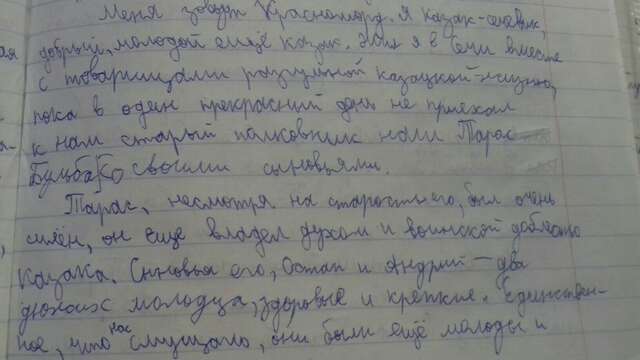 Меня зовут Красноморд. Я казак-сечевик,
добрый, молодой ещё казак. Жил я в Сечи вместе
с товарищами разгульной казацкой жизнью,
пока в один прекрасный день не приехал
к нам старый полковник наш Тарас
Бульба со своими сыновьями.
Тарас, несмотря на старость его, был очень
силён, он ещё владел духом и воинской доблестью
казака. Сыновья его, Остап и Андрий – два
дюжих молодца, здоровые и крепкие. Единствен-
ное, что нас смущало, они были ещё молоды и